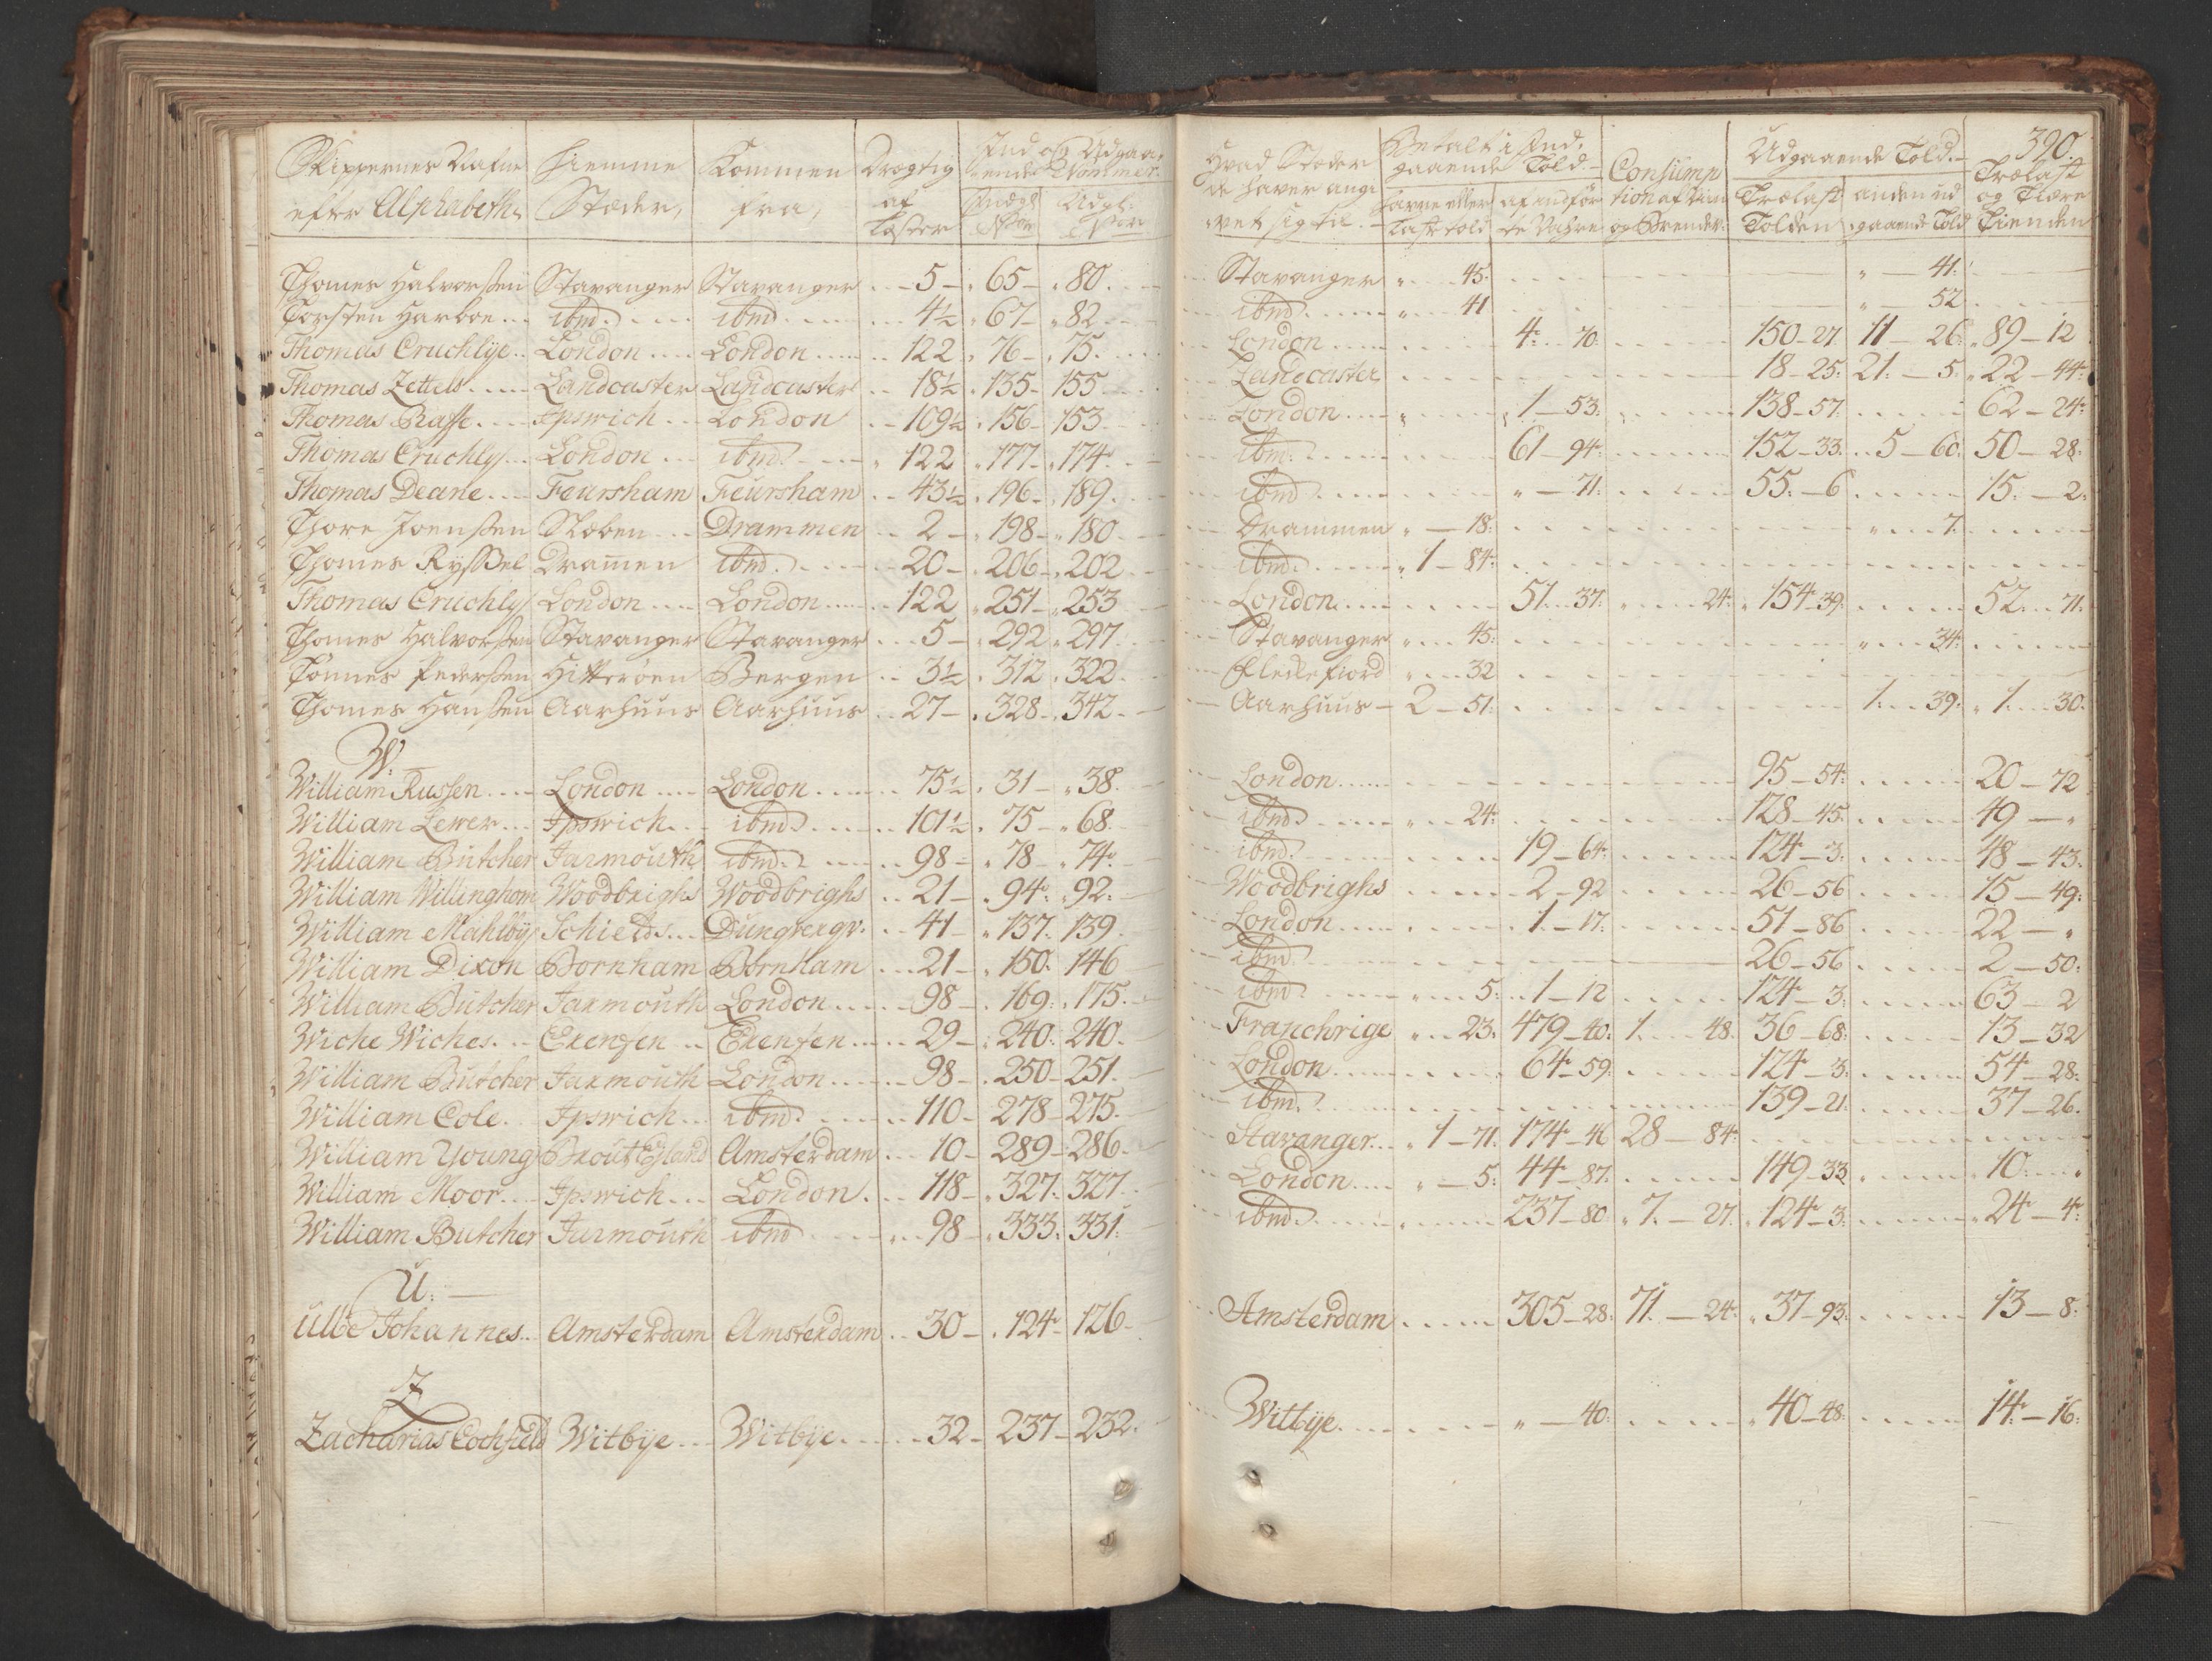 Skippernes Nafne efter Alphabeth. | Hiemme Stæder, | Kommen fra, | Drægtig af Læster | Ind og Udgaaende Nommer. | Indg: | Udg:
Thomes Halvorsen Stavanger Stavanger 5 65 80.
Torsten Harboe ibm. ibm 4½ 67 82
Thomas Cruchlye London London 122 76 75.
Thomas Zettels Landcaster Landcaster 18½ 135 155
Thomas Bass Ipswich London 109½ 156 153
Thomas Cruchly London ibm. 122 177 174
Thomas Deane Feursham Feursham 43½ 196 189.
Thore Joensen Sleben Drammen 2 198 180
Thomes Ryssel Dramen ibm. 20 206 202
Thomas Cruchly London London 122 251 253
Thomes Halvorsen Stavanger Stavanger 5 292 297
Tönnes Pedersen Hitteröen Bergen 3½ 312 322
Thomes Hansen Aarhuus Aarhuus 27 328 342
W.
William Russen London London 75½ 31 38.
William Lewer Ipswich ibm. 101½ 75 68.
William Butcher Jarmouth ibm. 98 78 74.
William Willinghom Woodbrighs Woodbrighs 21 94. 92.
William Mahlby Schields Dungvergv. 41 137. 139.
William Dixon Bornham Bornham 21 150. 146
William Butcher Jarmouth London 98 169. 175.
Wiche Wiches. Exensen Exensen 29 240. 240.
William Butcher Jarmouth London 98 250 251.
William Cole. Ipswich ibm. 110 278 275.
William Young Amsterdam 10 289 286
William Moor Ipswich London. 118 327. 327.
William Butcher Jurmouth ibm 98 333. 331.
U.
Ulbe Johannes Amsterdam Amsterdam 30 124 126
Z
Zacharias Cochfield Witbye Witbye 32 237 232.
390.
Hvad Stæder de haver angivet sig til. | Betalt i Indgaaende Told | Lasttold | af indförte Vahre | Consumption | Udgaaende Told. | Trælast Tolden | anden udgaaende Told | Trælast og Tiære Tienden
Stavanger " 45. " 41.
ibm. " 41 " 52
London 4. 70. 150-27. 11-26. 89-12
Landcaster 18-25. 21.-5. 22-44.
London 1-53. 138-57. 62-24.
ibm. 61-94. 152-33. 5-60. 50-28.
ibm. "-71. 55.-6 15.-2.
Drammen "-18. " 7.
ibm. 1-84.
London. 51.-37. 24. 154-39. 52.-71.
Stavanger " 45. " 34.
Fleckefiord " 32
Aarhuus 2-51. 1.-39. 1.-30.
London 95-54. 20-72
ibm. " 24. 128-45. 49-"
ibm. 19-64. 124-3. 48-43.
Woodbrighs 2-92 26-56 15-49.
London 1-17. 51-86 22-"
ibm. 26-56 2-50.
ibm " 5. 1-12 124-3. 63-2
Franchrige " 23. 479-40. 1.-48. 36-68. 13-32
London 64-59. 124-3. 54-28.
ibm. 139-21. 37-26.
Stavanger 1-71. 174-46 28-84.
London "-5. 44-87. 149-33 10.-"
ibm. 237-80 7.-27. 124-3. 24-4.
Amsterdam 305-28. 71.-24. 37-93. 13-8.
Witbye "-40. 40-48. 14.-16.